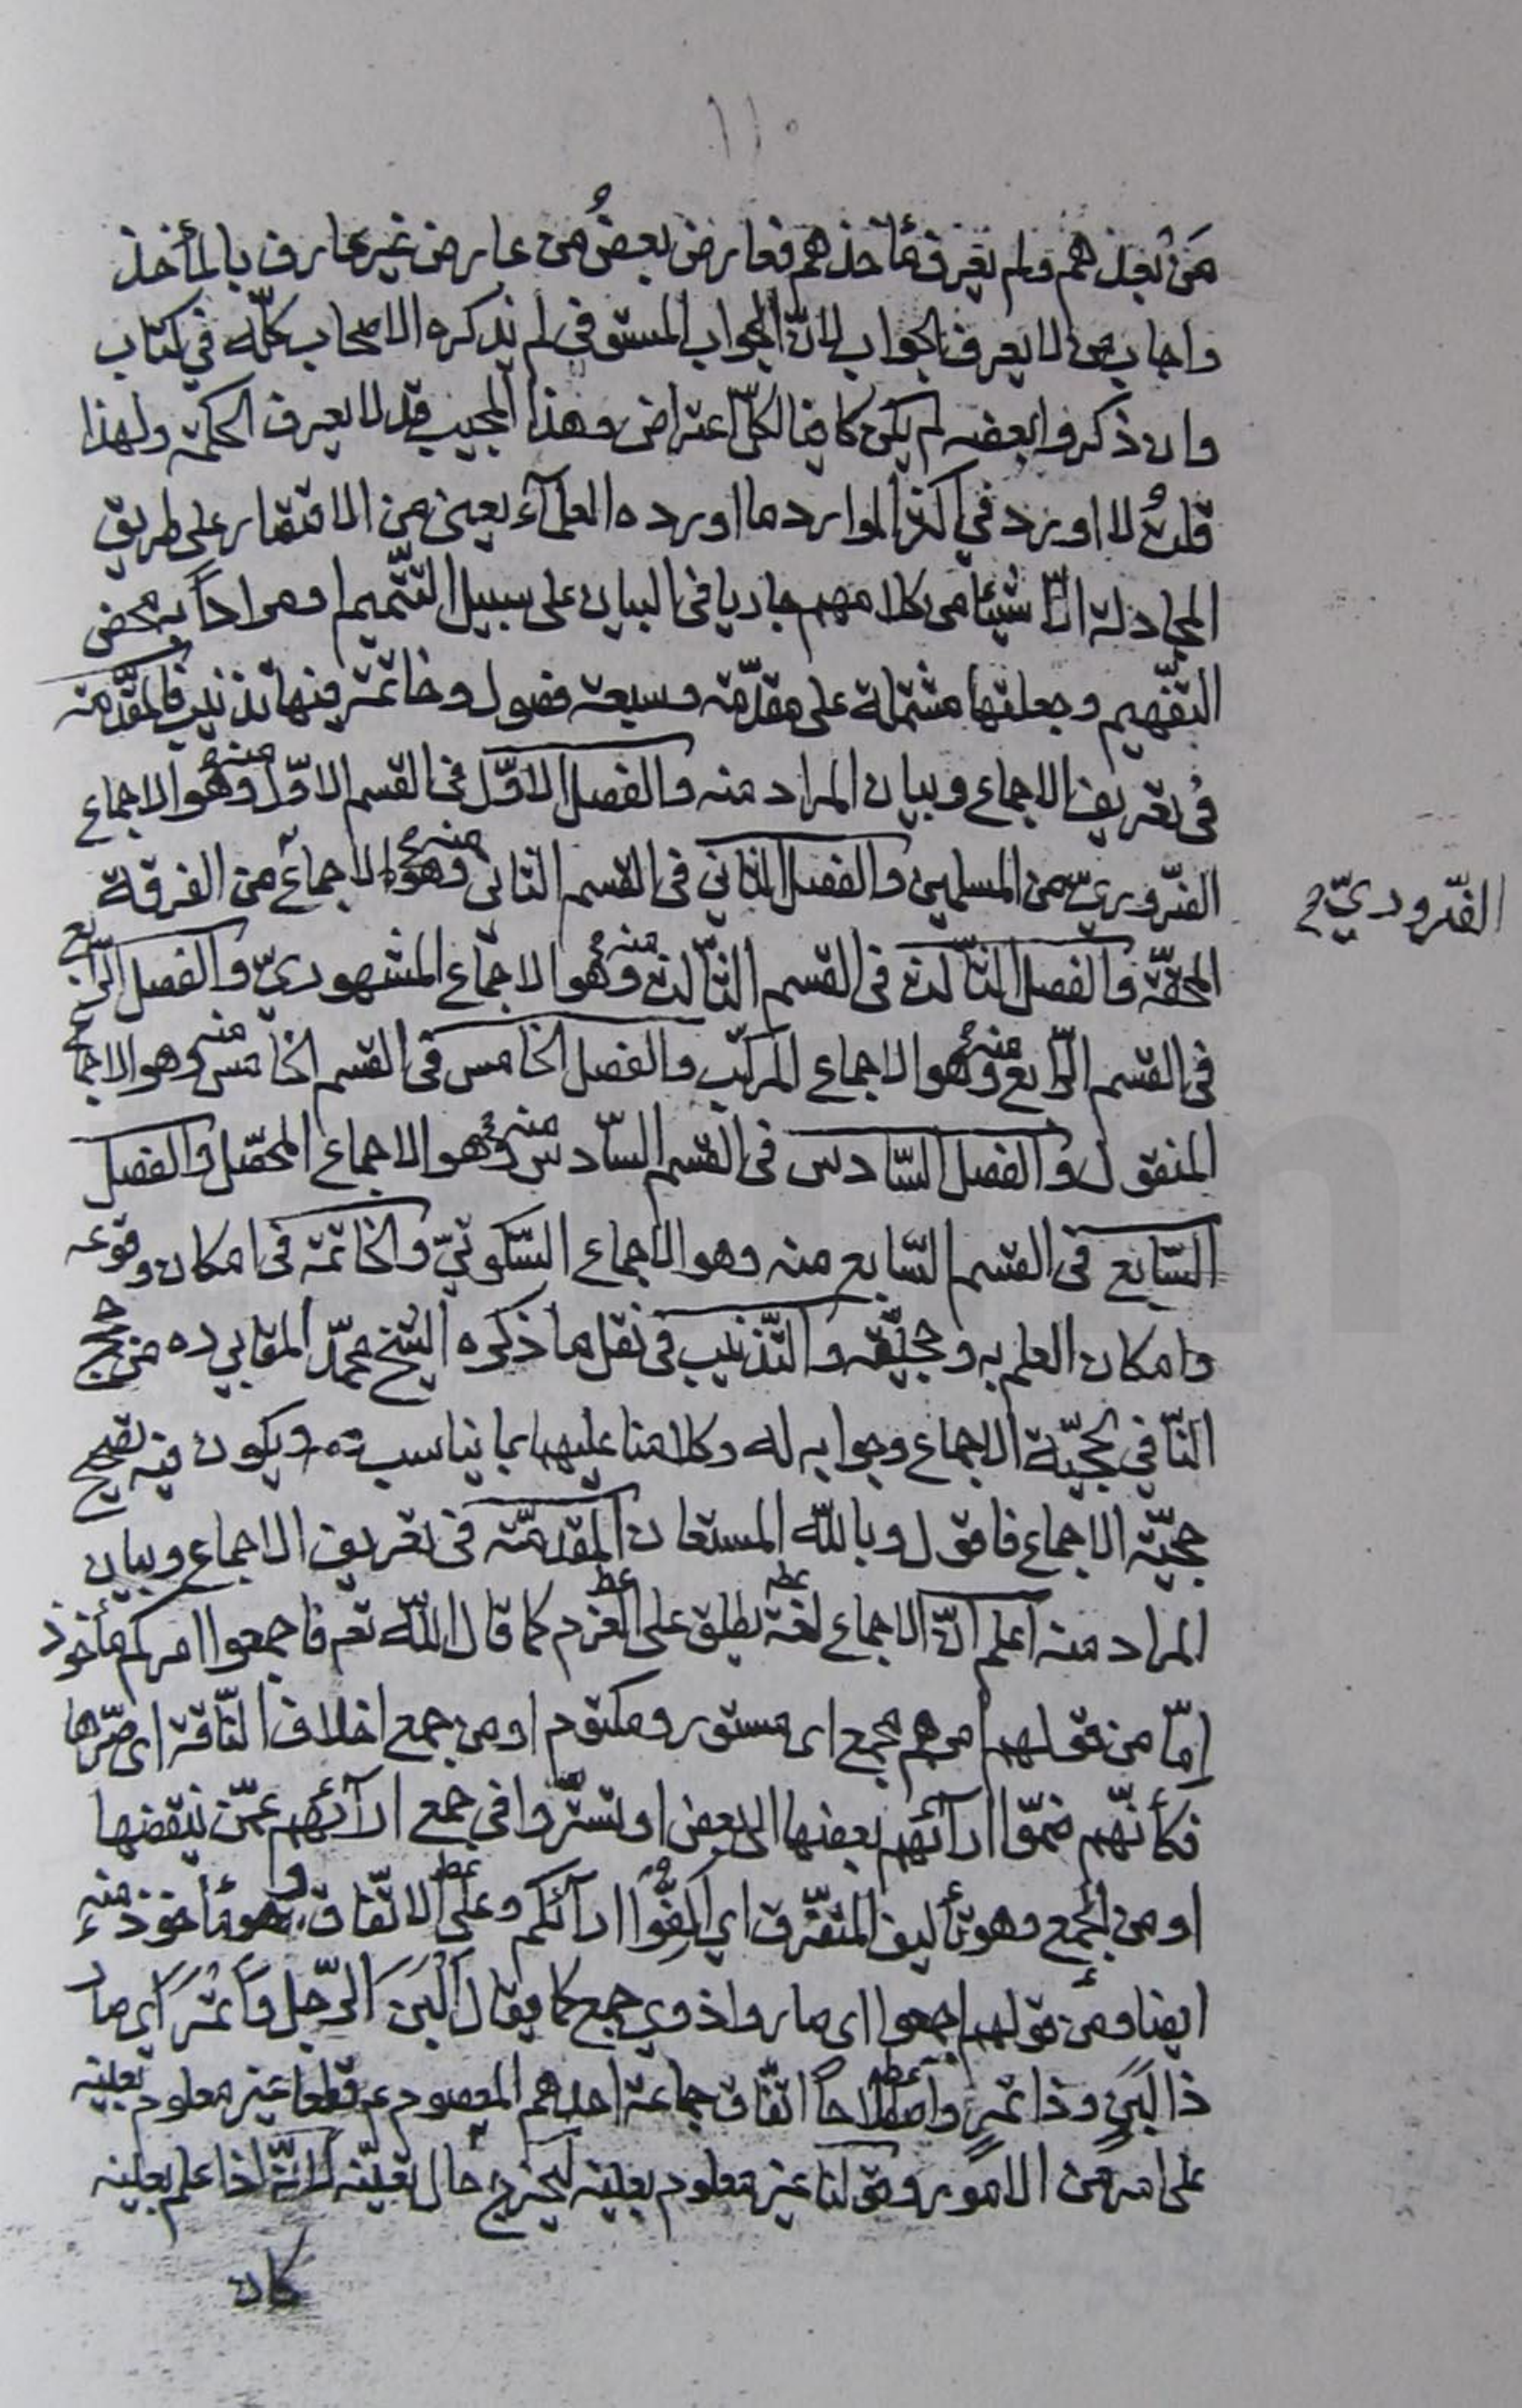 ١١٠
من بعدهم ولم يعرف مأخذهم فعارض بعضُ من عارض غير عارف بالمأخذ
واجاب من لا يعرف الجواب لانّ الجواب المستوفى لم يذكره الاصحاب كلّه في كتاب
وان ذكروا بعضه لم يكن كافيا لكلّ اعتراض وهذا المجيب قد لا يعرف الحكمة ولهذا
قلتُ لا اورد في اكثر الموارد ما اورده العلمآء يعنى من الاقتصار على طريق
المجادلة الّا شيئا من كلامهم جاريا في البيان على سبيل التّتميم ومرادا به محض
التّفهيم وجعلتها مشتملة على مقدّمة وسبعة فصول وخاتمة فيها تذنيب فالمقدّمة
في تعريف الاجماع وبيان المراد منه والفصل الاوّل في القسم الاوّل منه وهو الاجماع
الضّروريّ من المسلمين والفصل الثاني في القسم الثاني منه وهو الاجماع من الفرقة
الضّروريّ
المحقّة والفصل الثّالث في القسم الثّالث منه وهو الاجماع المشهوريّ والفصل الرّابع
في القسم الرّابع منه وهو الاجماع المركّب والفصل الخامس في القسم الخامس منه وهو الاجماع
المنقول والفصل السّادس في القسم السّادس منه وهو الاجماع المحصّل والفصل
السّابع في القسم السّابع منه وهو الاجماع السّكوتيّ والخاتمة في امكان وقوعه
وامكان العلم به وحجّيّته والتّذنيب في نقل ما ذكره الشّيخ محمّد المقابي ده من حجج
النّافي لحجّيّة الاجماع وجوابه له وكلامنا عليهما بما يناسب ويكون فيه تصحيح
حجّيّة الاجماع فاقول وبالله المستعان المقدّمة في تعريف الاجماع وبيان
المراد منه اعلم انّ الاجماع لغة يطلق على العزم كما قال اللّه تعم فاجمعوا امركم مأخوذ
امّا من قولهم امرهم مجمع اى مستور ومكتوم او من جمع اخلاف النّاقة اى صرّها
فكأنّهم ضمّوا ارآئهم بعضها الى بعض او تستّروا في جمع ارآئهم عمّن ينقضها
او من الجمع وهو تأليف المتفرّق اي الّفوا ارآئكم وعلى الاتّفاق وهو مأخوذ منه
ايضا ومن قولهم اجمعوا اى صاروا ذوي جمع كما يقال اَلبَنَ الرّجل وَاَتمَرَ اَي صار
ذا لبَن وذا تمر واصطلاحاً اتّفاق جماعة احدهم المعصوم ع قطعا غير معلوم بعينه
على امر من الامور وقولنا غير معلوم بعينه ليخرج حال تعيّنه لانّه اذا علم بعينه
كان